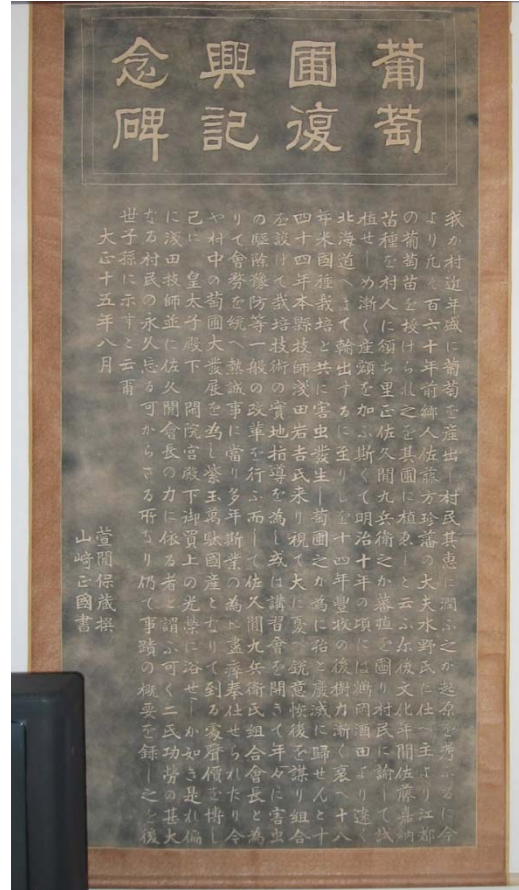 葡萄
圃復
興記
念碑
我か村近年盛に葡萄を産出し村民其惠に潤ふ之か起原を考ふるに今
より凡そ百六十年前鄉人佐藤方珍藩の大夫水野氏に仕へ主より江都
の葡萄苗を授けられ之を其圃に植ゑしと云ふ尓後文化年間佐藤嘉納
苗種を村人に頒ち里正佐久間九兵衛之か蕃殖を圖り村民に諭して試
植せしめ漸く産額を加ふ斯くて明治十年の頃には鶴岡酒田より遠く
北海道へまて輸出するに至りしを十四年豐收の後樹力漸く衰へ十八
年米國種栽培と共に害虫發生し萄圃之か為に殆と廢滅に歸せんとす
四十四年本縣技師淺田岩吉氏来り視て大に憂へ銳意恢復を謀り組合
を設けて栽培技術の實地指導を為し或は講習會を開きて年々に害虫
の驅除豫防等一般の改革を行ふ而して佐久間九兵衛氏組合會長と為
りて會務を統へ熱誠事に當り多年斯業の為に盡瘁奉仕せられたり今
や村中の萄圃大發展を為し紫玉萬馱國産となりて到る處聲價を博し
已に 皇太子殿下 閑院宮殿下御買上の光榮に浴せしか如き是れ偏
に淺田技師並に佐久間會長の力に依る者と謂ふ可く二氏功勞の甚大
なる村民の永久忘る可からさる所なり仍て事蹟の概要を録し之を後
世子孫に示すと云爾
大正十五年八月
萱間保蔵撰
山﨑正國書